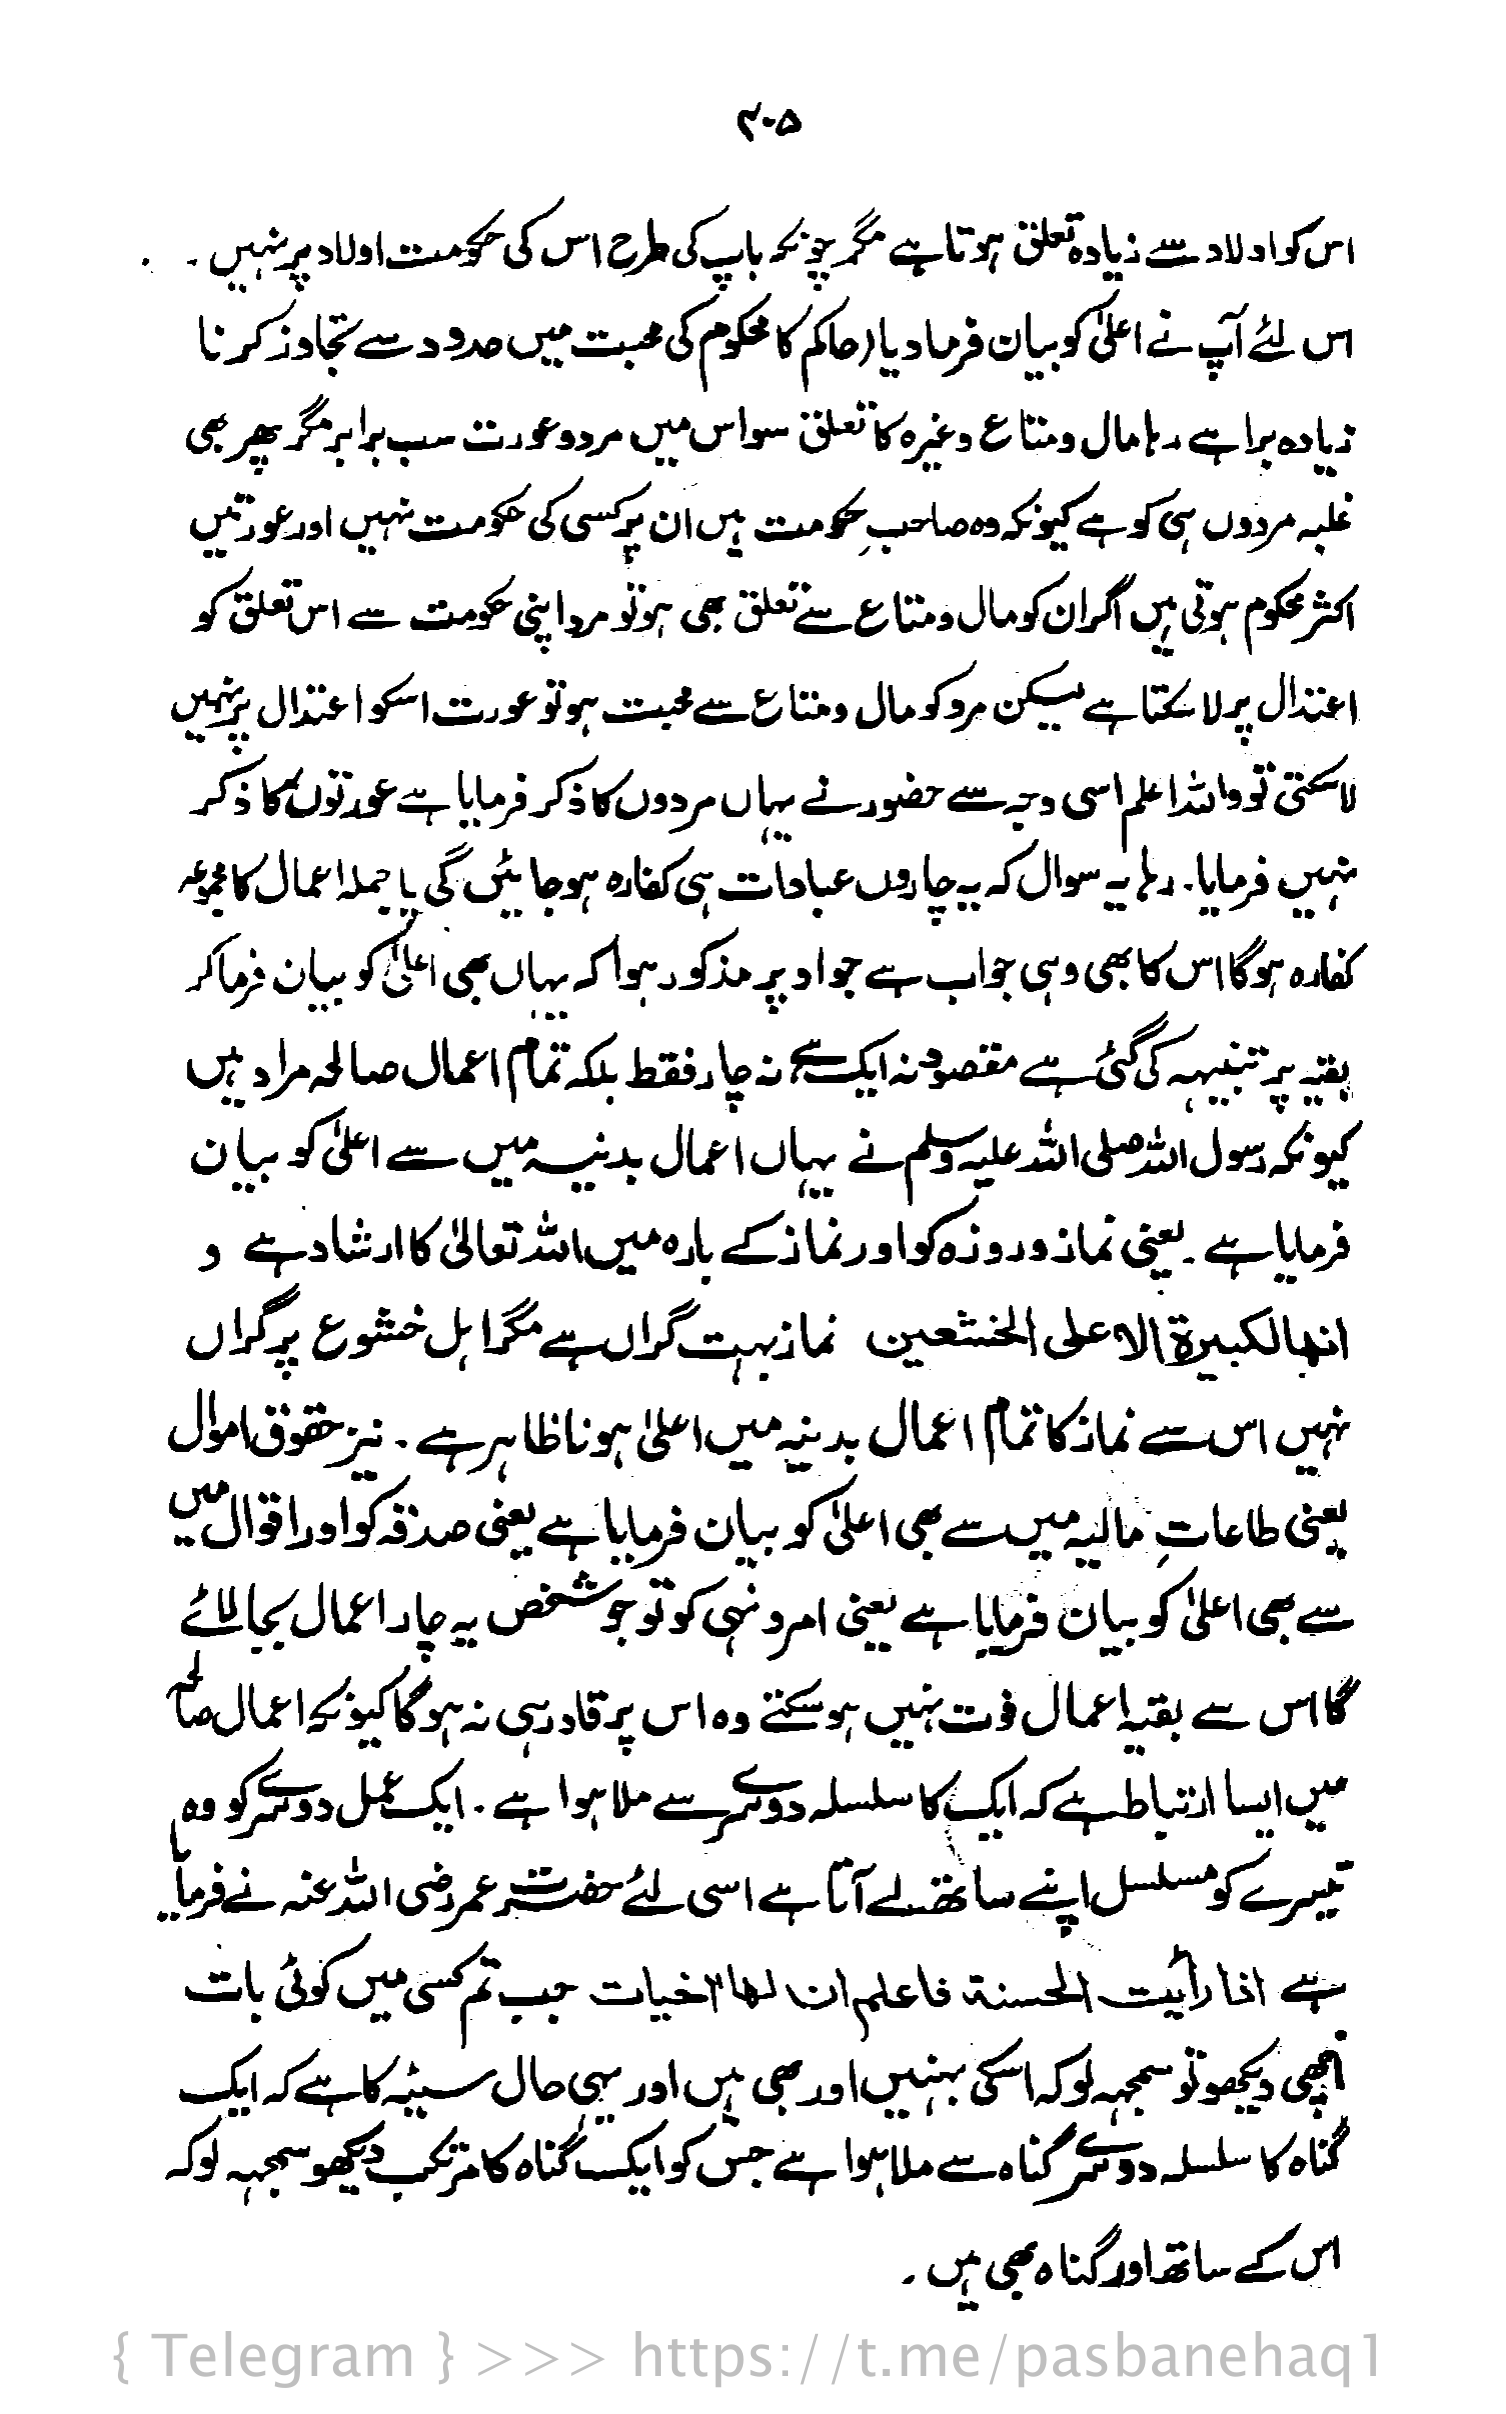 ۳۰۵
اس کو اولاد سے زیادہ تعلق ہوتا ہے مگر چونکہ باپ کی طرح اس کی حکومت اولاد پر نہیں ۔
اس لئے آپ نے اعلیٰ کو بیان فرما دیا (حاکم کا محکوم کی محبت میں حدود سے تجاوز کرنا
زیادہ برا ہے رہا مال و متاع وغیرہ کا تعلق سو اس میں مرد و عورت سب برابر مگر پھر بھی
غلبہ مردوں ہی کو ہے کیونکہ وہ صاحبِ حکومت ہیں ان پر کسی کی حکومت نہیں اور عورتیں
اکثر محکوم ہوتی ہیں اگر ان کو مال و متاع سے تعلق بھی ہو تو مرد اپنی حکومت سے اس تعلق کو
اعتدال پر لا سکتا ہے لیکن مرد کو مال و متاع سے محبت ہو تو عورت اسکو اعتدال پر نہیں
لا سکتی تو واللہ اعلم اسی وجہ سے حضور نے یہاں مردوں کا ذکر فرمایا ہے عورتوں کا ذکر
نہیں فرمایا۔ رہا یہ سوال کہ یہ چاروں عبادات ہی کفارہ ہو جائیں گی یا جملہ اعمال کا مجموعہ
کفارہ ہوگا اس کا بھی وہی جواب ہے جو اوپر مذکور ہوا کہ یہاں بھی اعلیٰ کو بیان فرما کر
بقیہ پر تنبیہہ کی گئی ہے مقصود نہ ایک ہے نہ چار فقط بلکہ تمام اعمال صالحہ مراد ہیں
کیونکہ رسول اللہ صلی اللہ علیہ وسلم نے یہاں اعمال بدنیہ میں سے اعلیٰ کو بیان
فرمایا ہے ۔ یعنی نماز و روزہ کو اور نماز کے بارہ میں اللہ تعالیٰ کا ارشاد ہے و
انھا لکبیرۃ الا علی الخشعین نماز بہت گراں ہے مگر اہل خشوع پر گراں
نہیں اس سے نماز کا تمام اعمال بدنیہ میں اعلیٰ ہونا ظاہر ہے ۔ نیز حقوق اموال
یعنی طاعاتِ مالیہ میں سے بھی اعلیٰ کو بیان فرمایا ہے یعنی صدقہ کو اور اقوال میں
سے بھی اعلیٰ کو بیان فرمایا ہے یعنی امر و نہی کو تو جو شخص یہ چار اعمال بجا لائے
گا اس سے بقیہ اعمال فوت نہیں ہو سکتے وہ اس پر قادر ہی نہ ہوگا کیونکہ اعمال صالحہ
میں ایسا ارتباط ہے کہ ایک کا سلسلہ دوسرے سے ملا ہوا ہے ۔ ایک عمل دوسرے کو وہ
تیسرے کو مسلسل اپنے ساتھ لے آتا ہے اسی لئے حضرت عمر رضی اللہ عنہ نے فرمایا
ہے اذا رأیت الحسنة فاعلم ان لھا اخیات جب تم کسی میں کوئی بات
اچھی دیکھو تو سمجہہ لو کہ اسکی بہنیں اور بھی ہیں اور یہی حال سیئہ کا ہے کہ ایک
گناہ کا سلسلہ دوسرے گناہ سے ملا ہوا ہے جس کو ایک گناہ کا مرتکب دیکھو سمجہہ لو کہ
اس کے ساتھ اور گناہ بھی ہیں ۔
{ Telegram } >>> https://t.me/pasbanehaq1